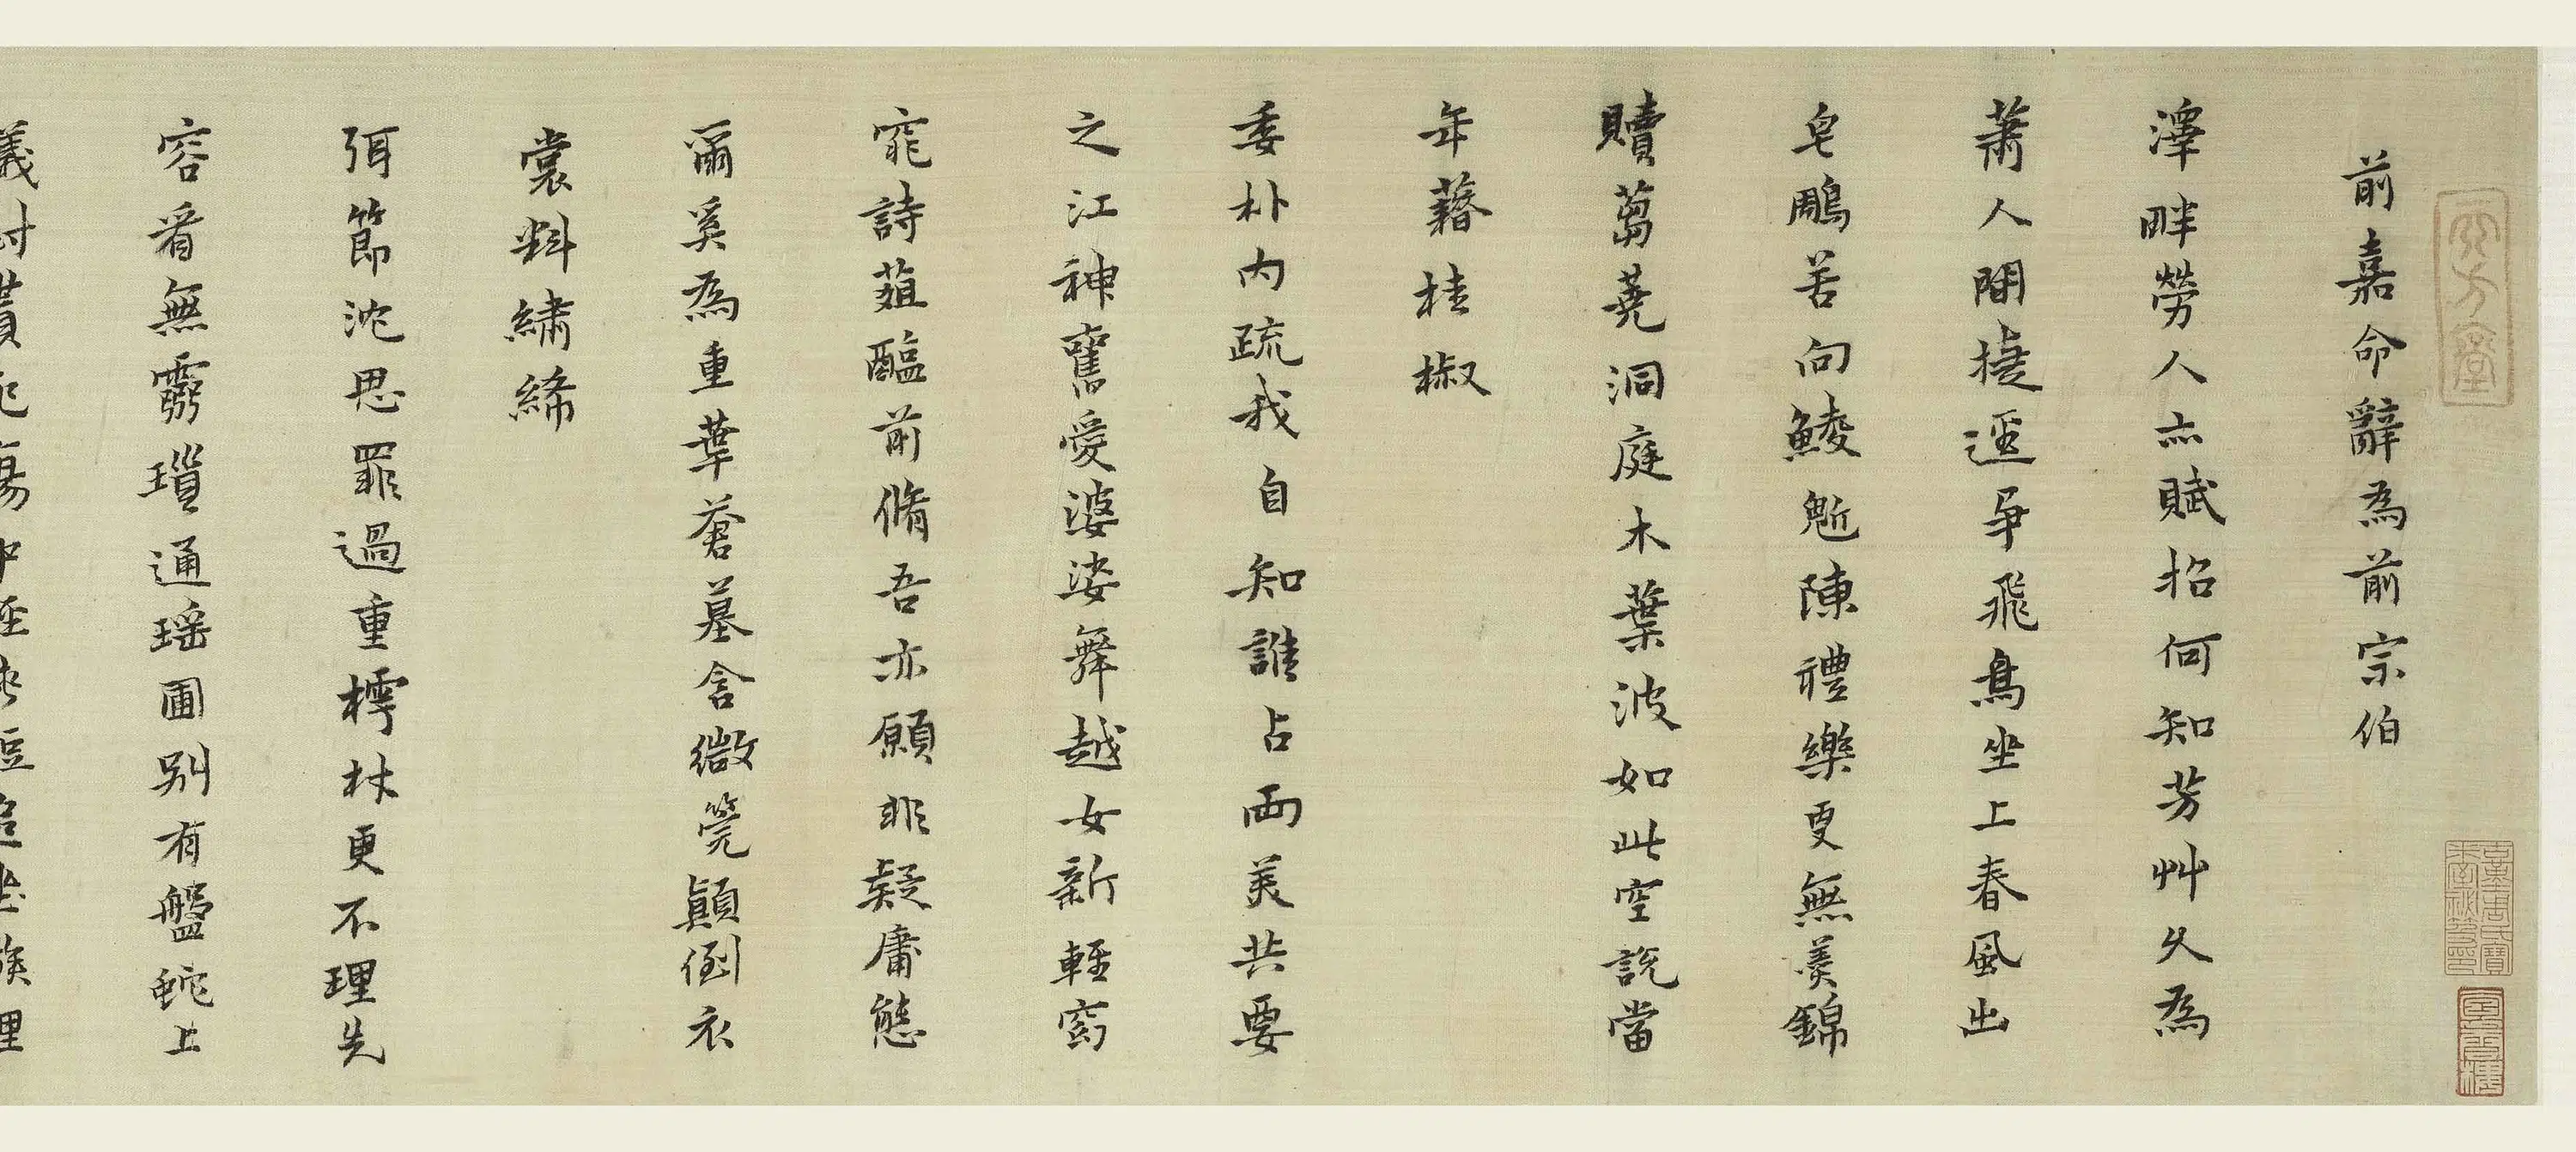 前嘉命辭為前宗伯
澤畔勞人亦賦招何知芳艸久為
蕭人間捷逕爭飛鳥坐上春風出
皂鵰苦向鯪魁陳禮樂更無羙錦
贖蒭蕘洞庭木葉波如此空說當
年藉桂椒
委朴內疏我自知誰占兩美共要
之江神舊愛婆娑舞越女新輕窈
窕詩葅醢前脩吾亦願非疑庸態
爾奚為重華蒼墓含微筦顛倒衣
裳料繡絺
弭節沈思罪過重樗材更不理先
容看無雺瑣通瑶圃別有盤蛇上